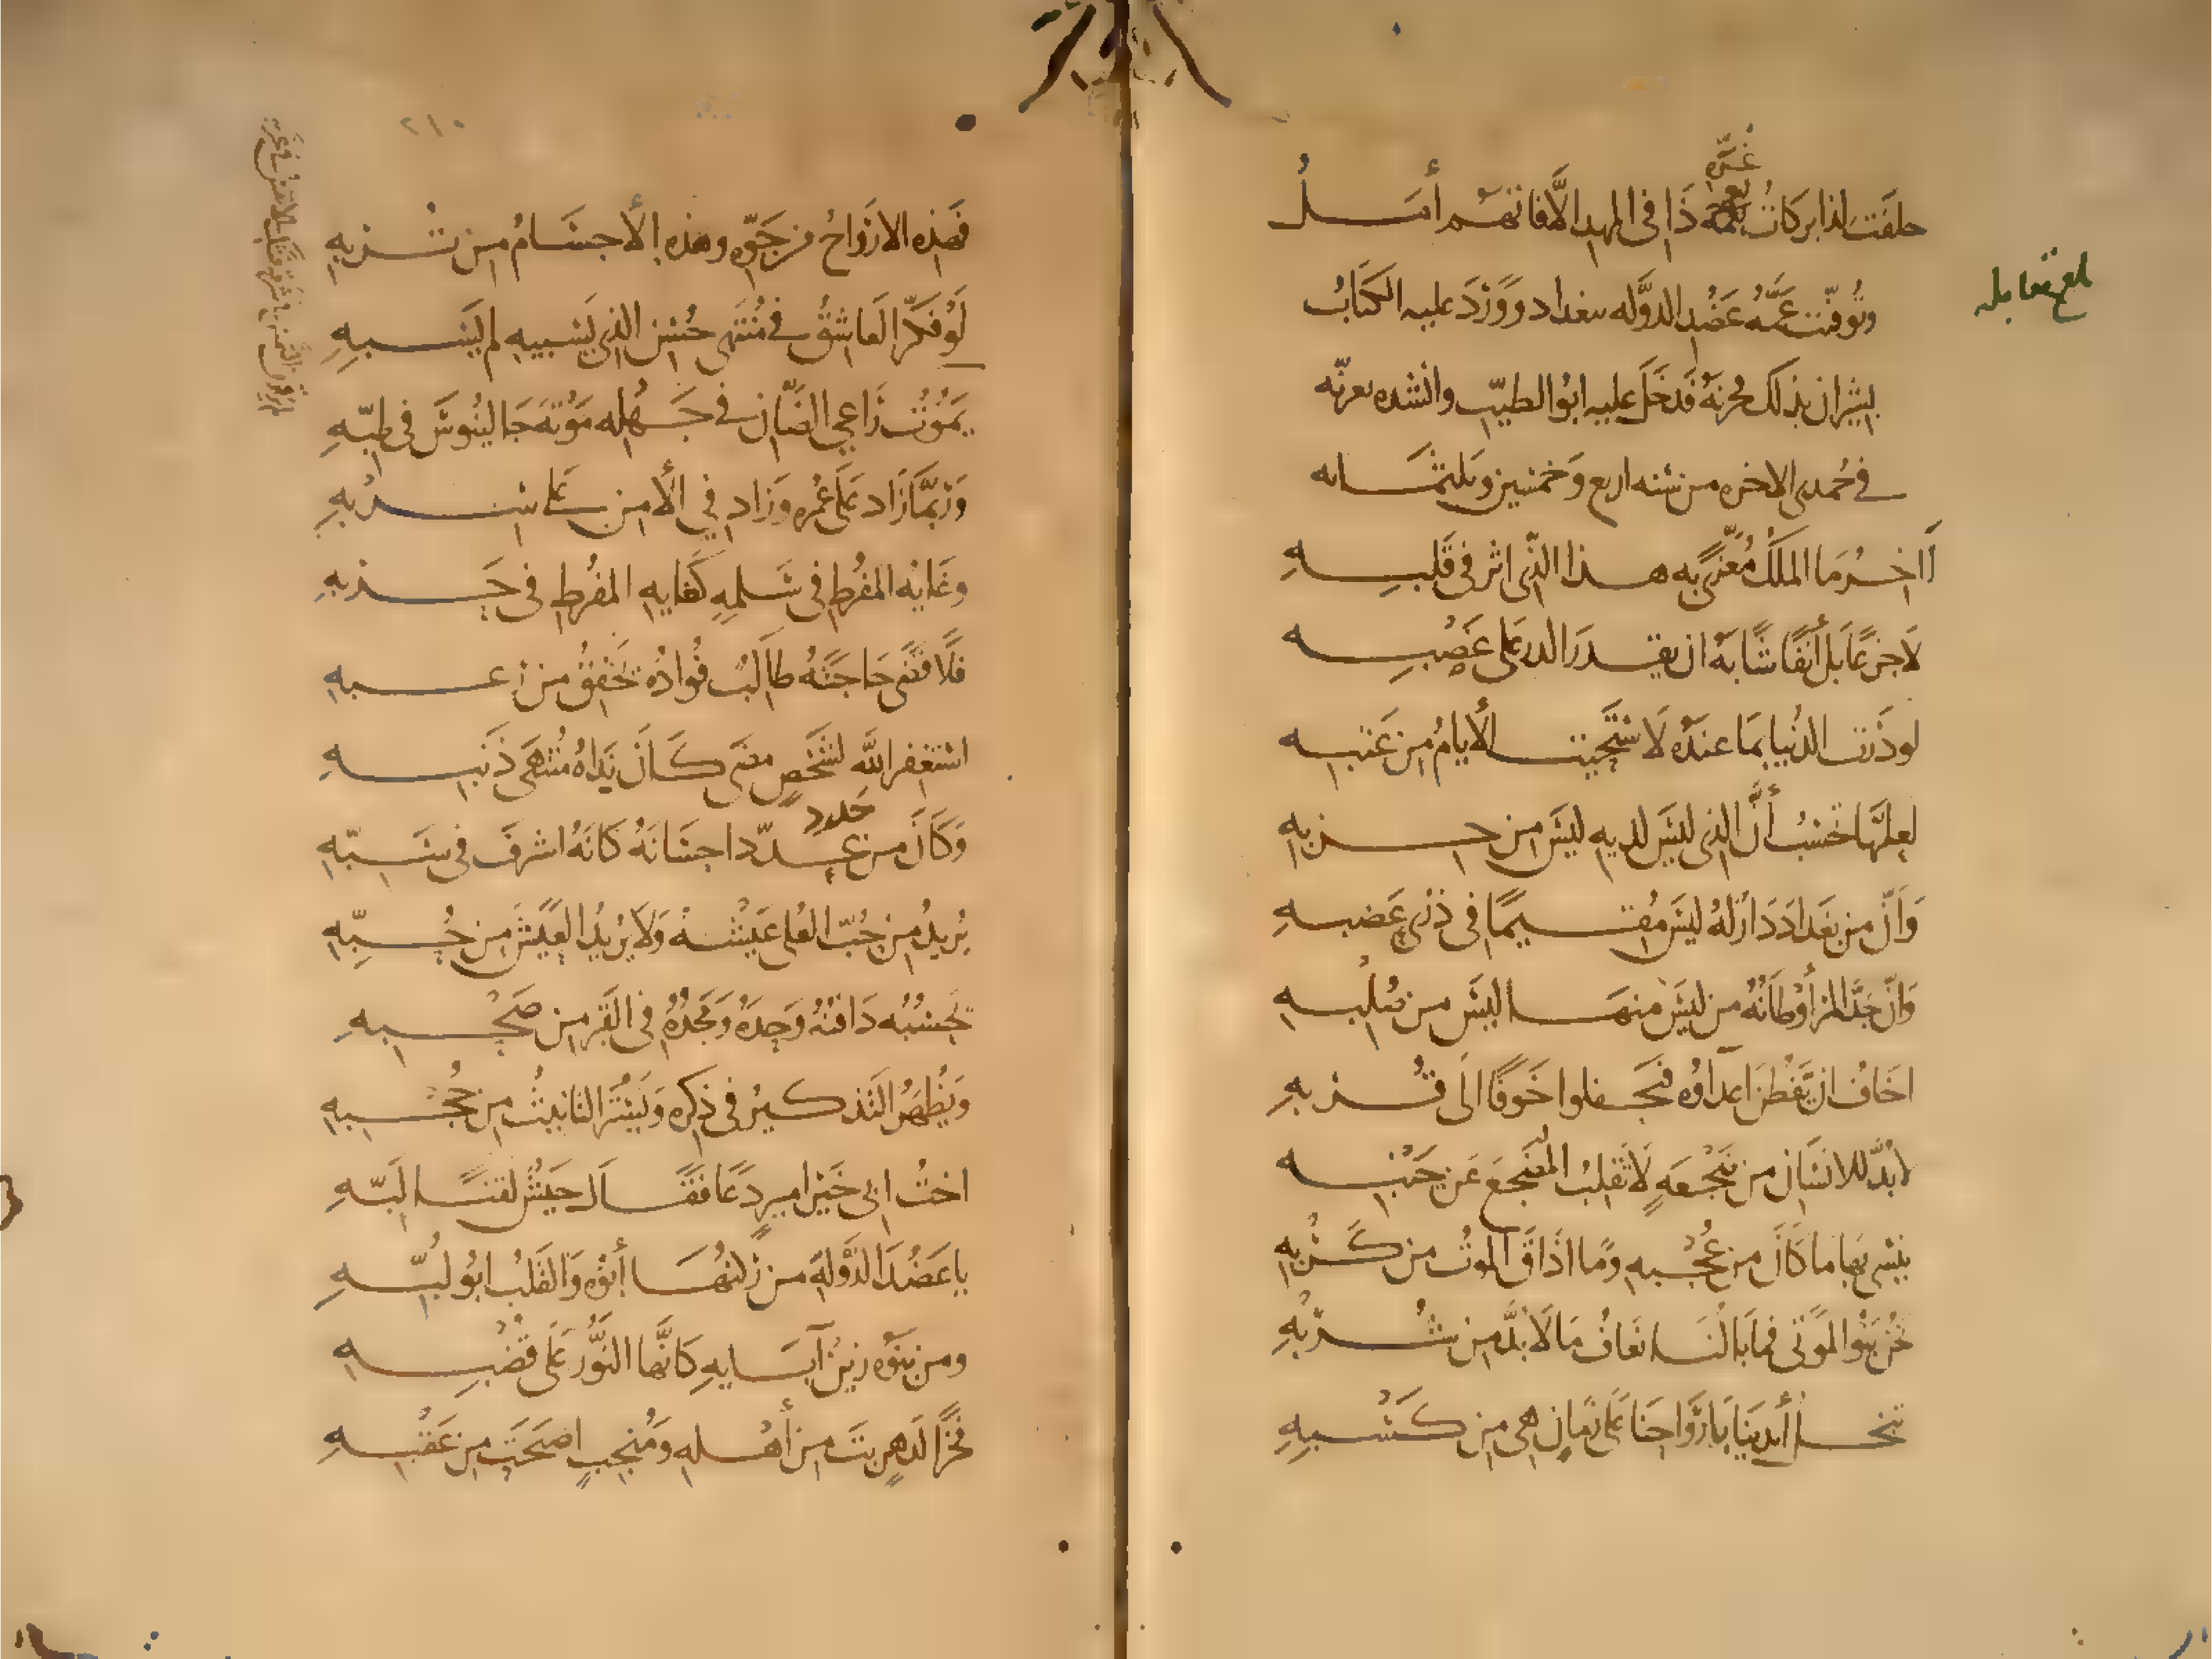 حلفت لذا بركات غرة ذا في المهد الا فاتهم أمل
وتوفيت عمه عضد الدوله ببغداد وورد عليه الكتاب
بشيراز بذلك فحزنه فدخل عليه ابو الطيب وانشده يعزيه
في جمدى الاخره من سنه اربع وخمسين وثلثمايه
أاخر ما الملك معزى به هذا الذي اثر في قلبه
لا جزعا بل أنفا شابه ان يقدر الدهر على غصبه
لو درت الدنيا بما عنده لاستحيت الأيام من عتبه
لعلها تحسب أن الذي ليس لديه ليس من حزبه
وأن من بغداد دار له ليس مقيما في ذرى عضبه
وأن جد المرء أوطانه من ليس منها ليس من صلبه
اخاف ان يفطن اعداوه فيجفلوا خوفا الى قربه
لا بد للانسان من ضجعه لا تقلب المضجع عن جنبه
ينسى بها ما كان من عجبه وما اذاق الموت من كربه
نحن بنو الموتى فما بالنا نعاف ما لا بد من شربه
تبخل أيدينا بارواحنا على زمان هي من كسبه
بلغ مقابله
٢١٠
فهذه الارواح من جوه وهذه الأجسام من تربه
لو فكر العاشق في منتهى حسن الذي يسبيه لم يسبه
يموت راعي الضان في جهله موته جالينوس في طبه
وربما زاد على عمره وزاد في الأمن على سربه
وغايه المفرط في سلمه كغايه المفرط في حربه
فلا قضى حاجته طالب فواده يخفق من رعبه
استغفر الله لشخص مضى كان نداه منتهى ذنبه
وكان من عدد احسانه كانه اسرف في سبه
يريد من حب العلى عيشه ولا يريد العيش من حبه
يحسبه دافنه وحده ومجده في القبر من صحبه
ويظهر التذكير في ذكره ويستر التانيث من حجبه
اخت ابي خير امير دعا فقال جيش لقنا لبه
يا عضد الدوله من ركنها أبوه والقلب ابو لبه
ومن بنوه زين آبايه كانها النور على قضبه
فخرا لدهر بت من أهله ومنجب اصبحت من عقبه